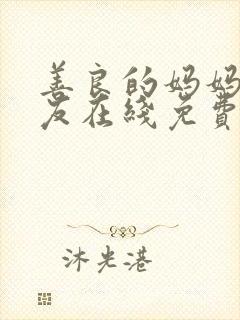 善良的妈妈
友在线免費
沐光港